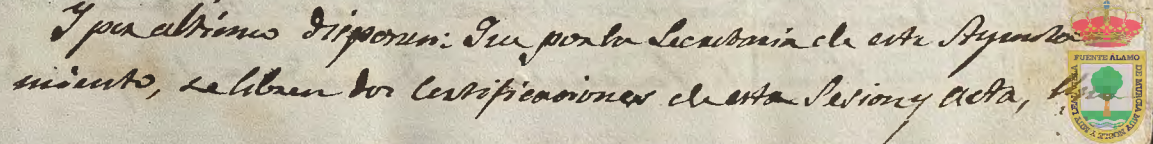 Y por ultimo disponen: Que por la Secretaria de este Ayunta
miento, se libren dos Certificaciones de esta Sesion y acta,
FUENTE ALAMO
DE MURCIA MUY NOBLE Y MUY LEAL VILLA